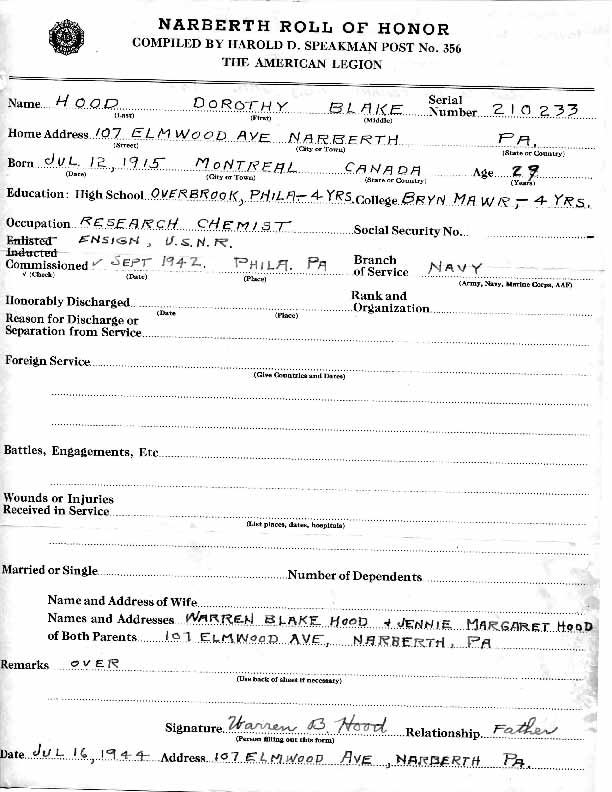 NARBERTH ROLL OF HONOR
COMPILED BY HAROLD D. SPEAKMAN POST No. 356
THE AMERICAN LEGION
Name HOOD DOROTHY BLAKE Serial Number 210233
(Last) (First) (Middle)
Home Address 107 ELMWOOD AVE NARBERTH PA.
(Street) (City or Town) (State or Country)
Born JUL 12, 1915 MONTREAL CANADA Age 29
(Date) (City or Town) (State or Country) (Years)
Education: High School OVERBROOK, PHILA - 4 YRS. College BRYN MAWR, - 4 YRS.
Occupation RESEARCH CHEMIST Social Security No.
Enlisted ENSIGN, U.S.N.R.
Inducted
Commissioned ✓ SEPT 1942. PHILA. PA Branch of Service NAVY
√ (Check) (Date) (Place) (Army, Navy, Marine Corps, AAF)
Honorably Discharged Rank and Organization
(Date (Place)
Reason for Discharge or
Separation from Service
Foreign Service
(Give Countries and Dates)
Battles, Engagements, Etc
Wounds or Injuries
Received in Service
(List places, dates, hospitals)
Married or Single Number of Dependents
Name and Address of Wife
Names and Addresses WARREN BLAKE HOOD & JENNIE MARGARET HOOD
of Both Parents 107 ELMWOOD AVE, NARBERTH, PA
Remarks OVER
(Use back of sheet if necessary)
Signature Warren B. Hood Relationship Father
(Person filling out this form)
Date JUL 16, 1944 Address 107 ELMWOOD AVE, NARBERTH PA.